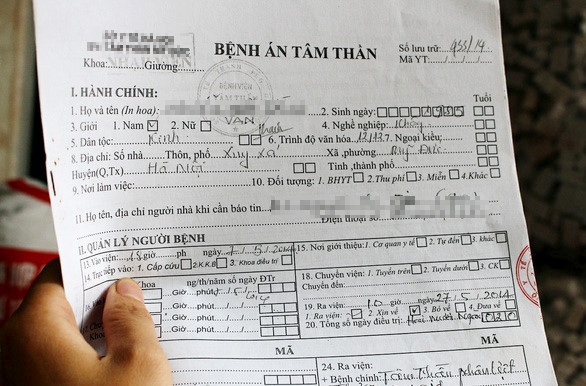 BỆNH ÁN TÂM THẦN
Số lưu trữ: 955/14
Khoa: Giường:
Mã YT:
BỆNH VIỆN
I. HÀNH CHÍNH: Tuổi
1. Họ và tên (In hoa): VẠN 2. Sinh ngày:
3. Giới 1. Nam 2. Nữ 4. Nghề nghiệp:
5. Dân tộc: Kinh 6. Trình độ văn hóa: 12/12 7. Ngoại kiều:
8. Địa chỉ: Số nhà Thôn, phố Xuy xá Xã, phường: Mỹ Đức
Huyện(Q.Tx) Hà Nội Tỉnh, thành phố
9. Nơi làm việc: 10. Đối tượng: 1. BHYT 2. Thu phí 3. Miễn 4. Khác
11. Họ tên, địa chỉ người nhà khi cần báo tin
Điện thoại số
II. QUẢN LÝ NGƯỜI BỆNH
13. Vào viện: giờ ph ngày 5/2014
14. Trực tiếp vào: 1. Cấp cứu 2. K.K.B 3. Khoa điều trị
15. Nơi giới thiệu: 1. Cơ quan y tế 2. Tự đến 3. khác
Khoa ng/th/năm số ngày ĐTr
Giờ phút
Giờ phút
Giờ phút
18. Chuyển viện: 1. Tuyến trên 2. Tuyến dưới 3. CK
19. Ra viện: 10 giờ ngày 27/5/2014
1. Ra viện 2. Xin về 3. Bỏ về 4. Đưa về
20. Tổng số ngày điều trị: Hai mươi ngày 020
MÃ MÃ
24. Ra viện:
+ Bệnh chính: Tâm thần phân liệt